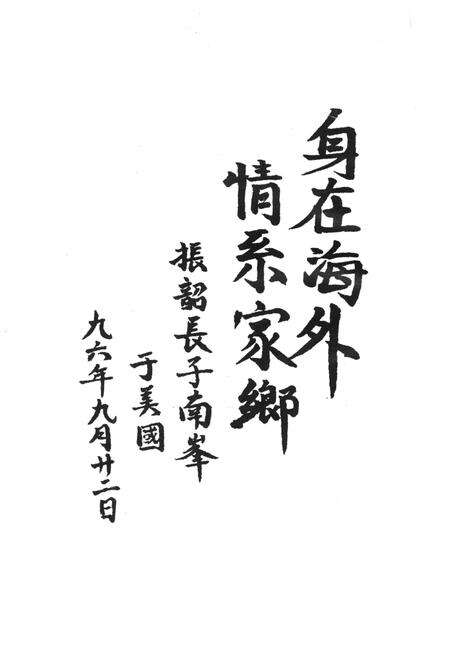 身在海外
情系家鄉
振韶長子南峯
于美國
九六年九月廿二日